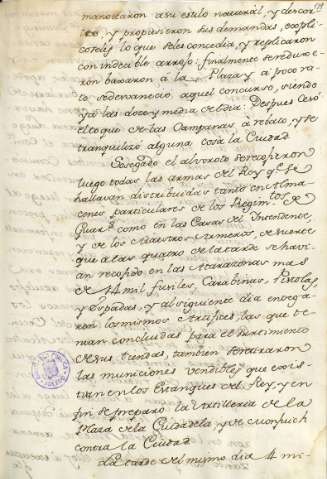 manifestaron a su estilo natural, y descor-
tes, y propusieron ses demandas, explic
loseles lo que seles concedia, y replicaron
con indecible arrojo: finalmente se reduxe-
ron baxaron á la Plaza y a poco ra-
to se desvaneció aquel concurso, siendo
ya las doze y media del dia: Despues Cesó
el toque de las Campanas á rebato, y se
tranquilizó alguna cosa la Ciudad
Sosegado el alvoroto se recogieron
luego todas las armas del Rey q.e se
hallavan distribuidas tanto en Alma
como particulares de los Regim.tos de
Guar.s como en las Casas del Intendente,
y de los Maestros Armeros, de suerte
que a las quatro de la tarde se havi-
an recogido en las Atarazanas mas
de 14 mil fusiles, Carabinas, Pistolas
y Espadas, y al siguiente dia entrega-
ron los mismos Artifices las que te-
nian concluidas para el surtimiento
de sus tiendas, tambien se retiraron
las municiones vendibles que exis-
tian en los Estanques del Rey, y en
fin se preparó la Artilleria de la
Plaza de la Ciudadela, y de Monjuich
contra la Ciudad
La tarde del mismo dia 4 mi-